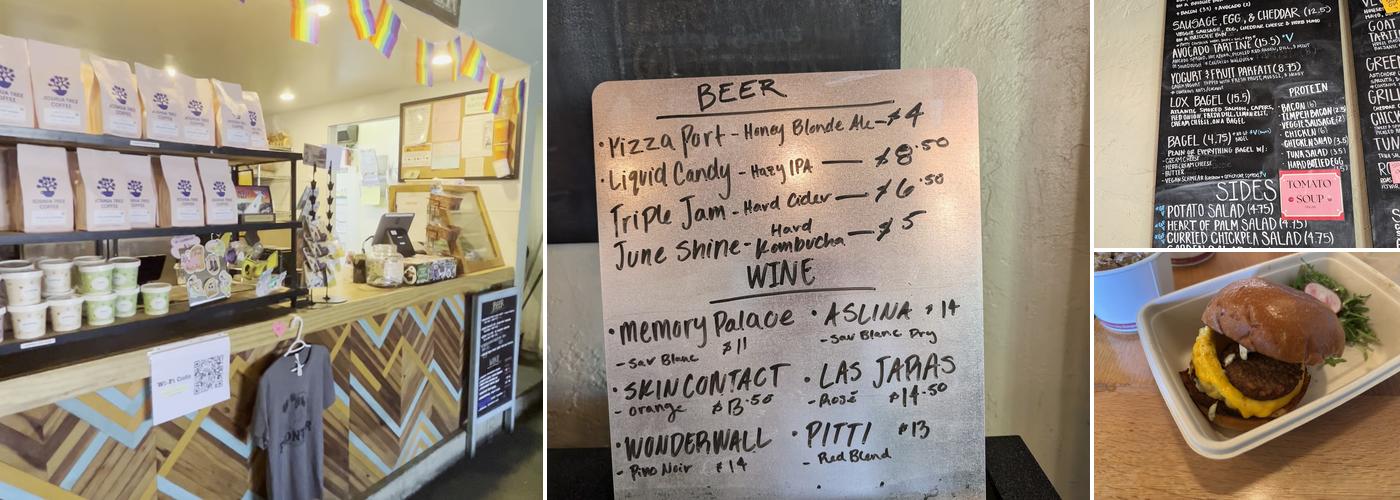 JOSHUA TREE
COFFEE
JOSHUA TREE
COFFEE
Wi-Fi Code
BEER
BEER
• Pizza Port - Honey Blonde Ale - $4
• Liquid Candy - Hazy IPA — $8.50
Triple Jam - Hard Cider — $6.50
June Shine - Hard Kombucha — $5
WINE
• memory Palace
- Sav Blanc $11
• SKIN CONTACT
- orange $13.50
• WONDERWALL
- Pino Noir $14
• ASLINA $14
- Sav Blanc Dry
• LAS JARAS
- Rosé $14.50
• PITTI $13
- Red Blend
SAUSAGE, EGG, & CHEDDAR (12.5)
AVOCADO TARTINE (15.5) *V
YOGURT & FRUIT PARFAIT (8.75)
LOX BAGEL (15.5)
ATLANTIC SMOKED SALMON, CAPERS,
RED ONION, FRESH DILL, LEMON ZEST,
CREAM CHEESE, ON A BAGEL
BAGEL (4.75)
PLAIN OR EVERYTHING BAGEL W/:
- CREAM CHEESE
- HERB CREAM CHEESE
- BUTTER
PROTEIN
BACON (6)
TEMPEH BACON (2.5)
VEGGIE SAUSAGE (2)
CHICKEN (6)
CHICKEN SALAD (3.5)
TUNA SALAD (3.5)
HARD BOILED EGG
TOMATO
SOUP
SIDES
POTATO SALAD (4.75)
HEART OF PALM SALAD (4.75)
CURRIED CHICKPEA SALAD (4.75)
GOAT